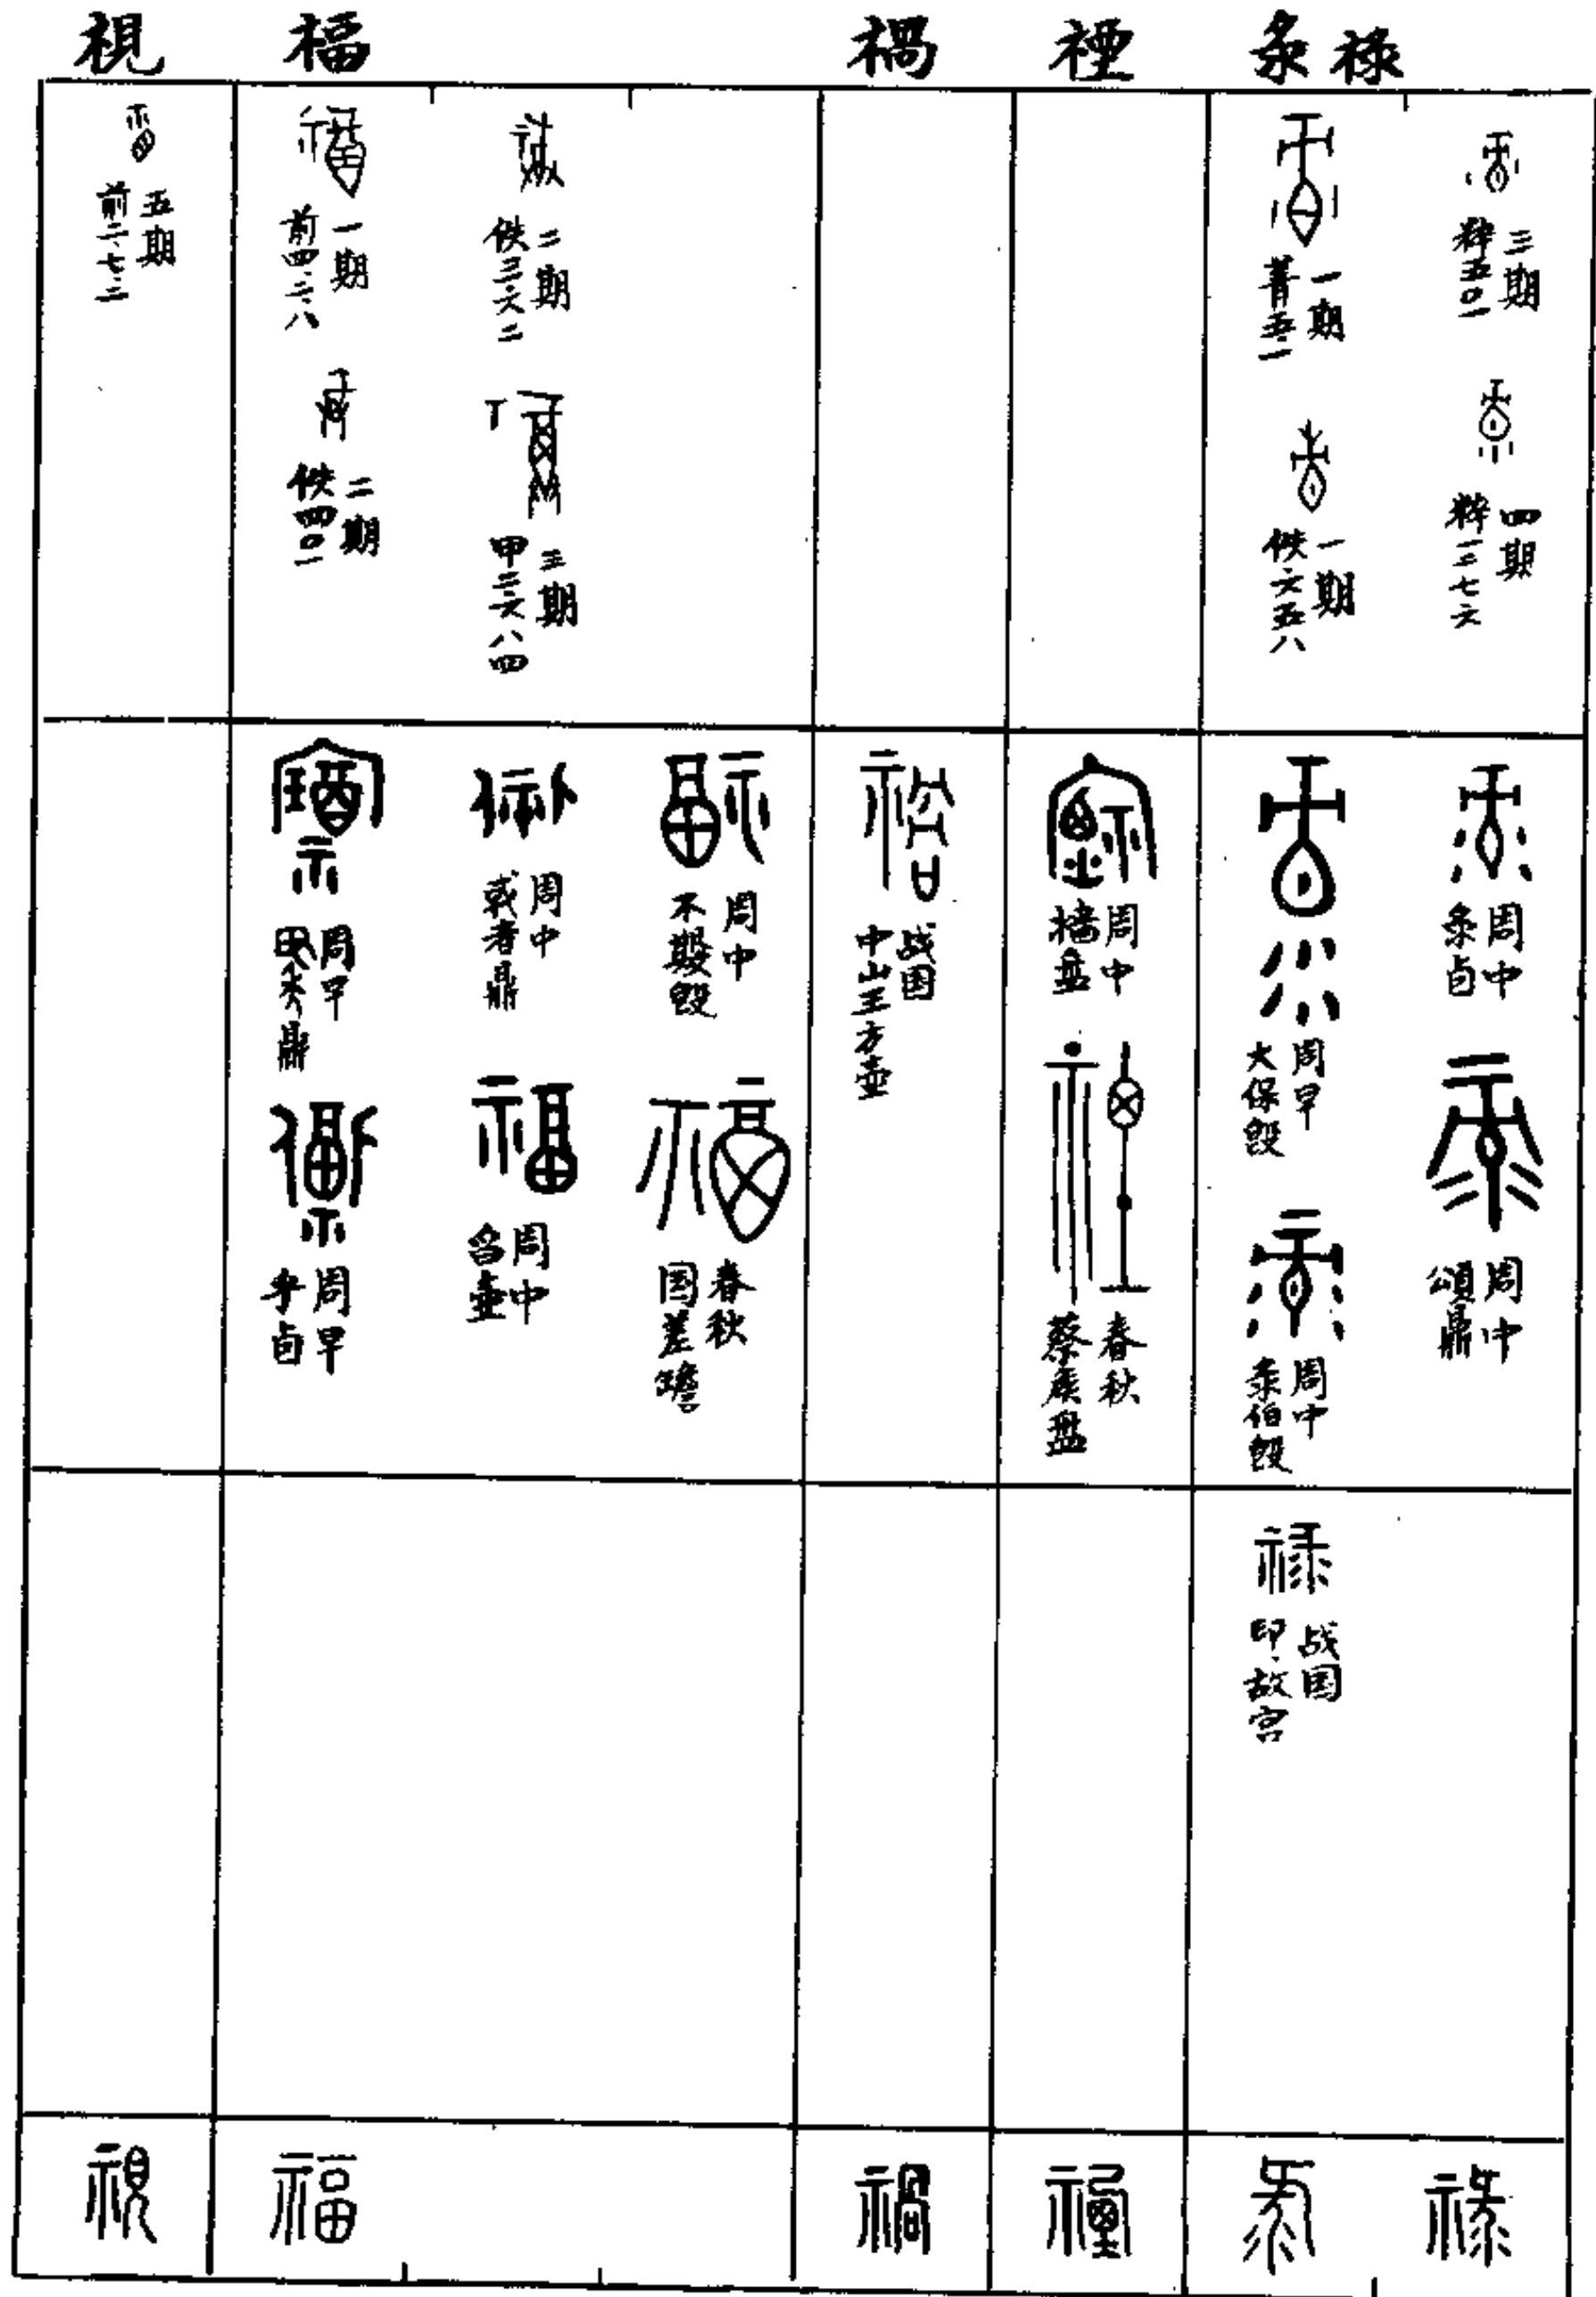 視 福 禍 禋 彔 祿
五期
前二·七·二
一期
前四·二·八
二期
佚四〇一
二期
佚三·六二
三期
甲二六八四
一期
菁五·一
一期
佚六五八
三期
粹五〇一
四期
粹一二七六
周早
周早
周中
或者鼎
周中
曶壺
周中
不𡢁𣪘
春秋
国差𦉜
战国
中山王方壺
周中
墙盘
春秋
蔡侯盘
周早
大保𣪘
周中
彔伯𣪘
周中
彔卣
周中
頌鼎
战国
印·故宫
視 福 禍 禋 彔 祿